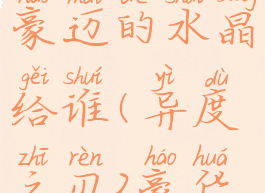 豪迈的水晶
gěi shuí yì dù
给谁(异度
zhī rèn háo huá
之刃)豪华